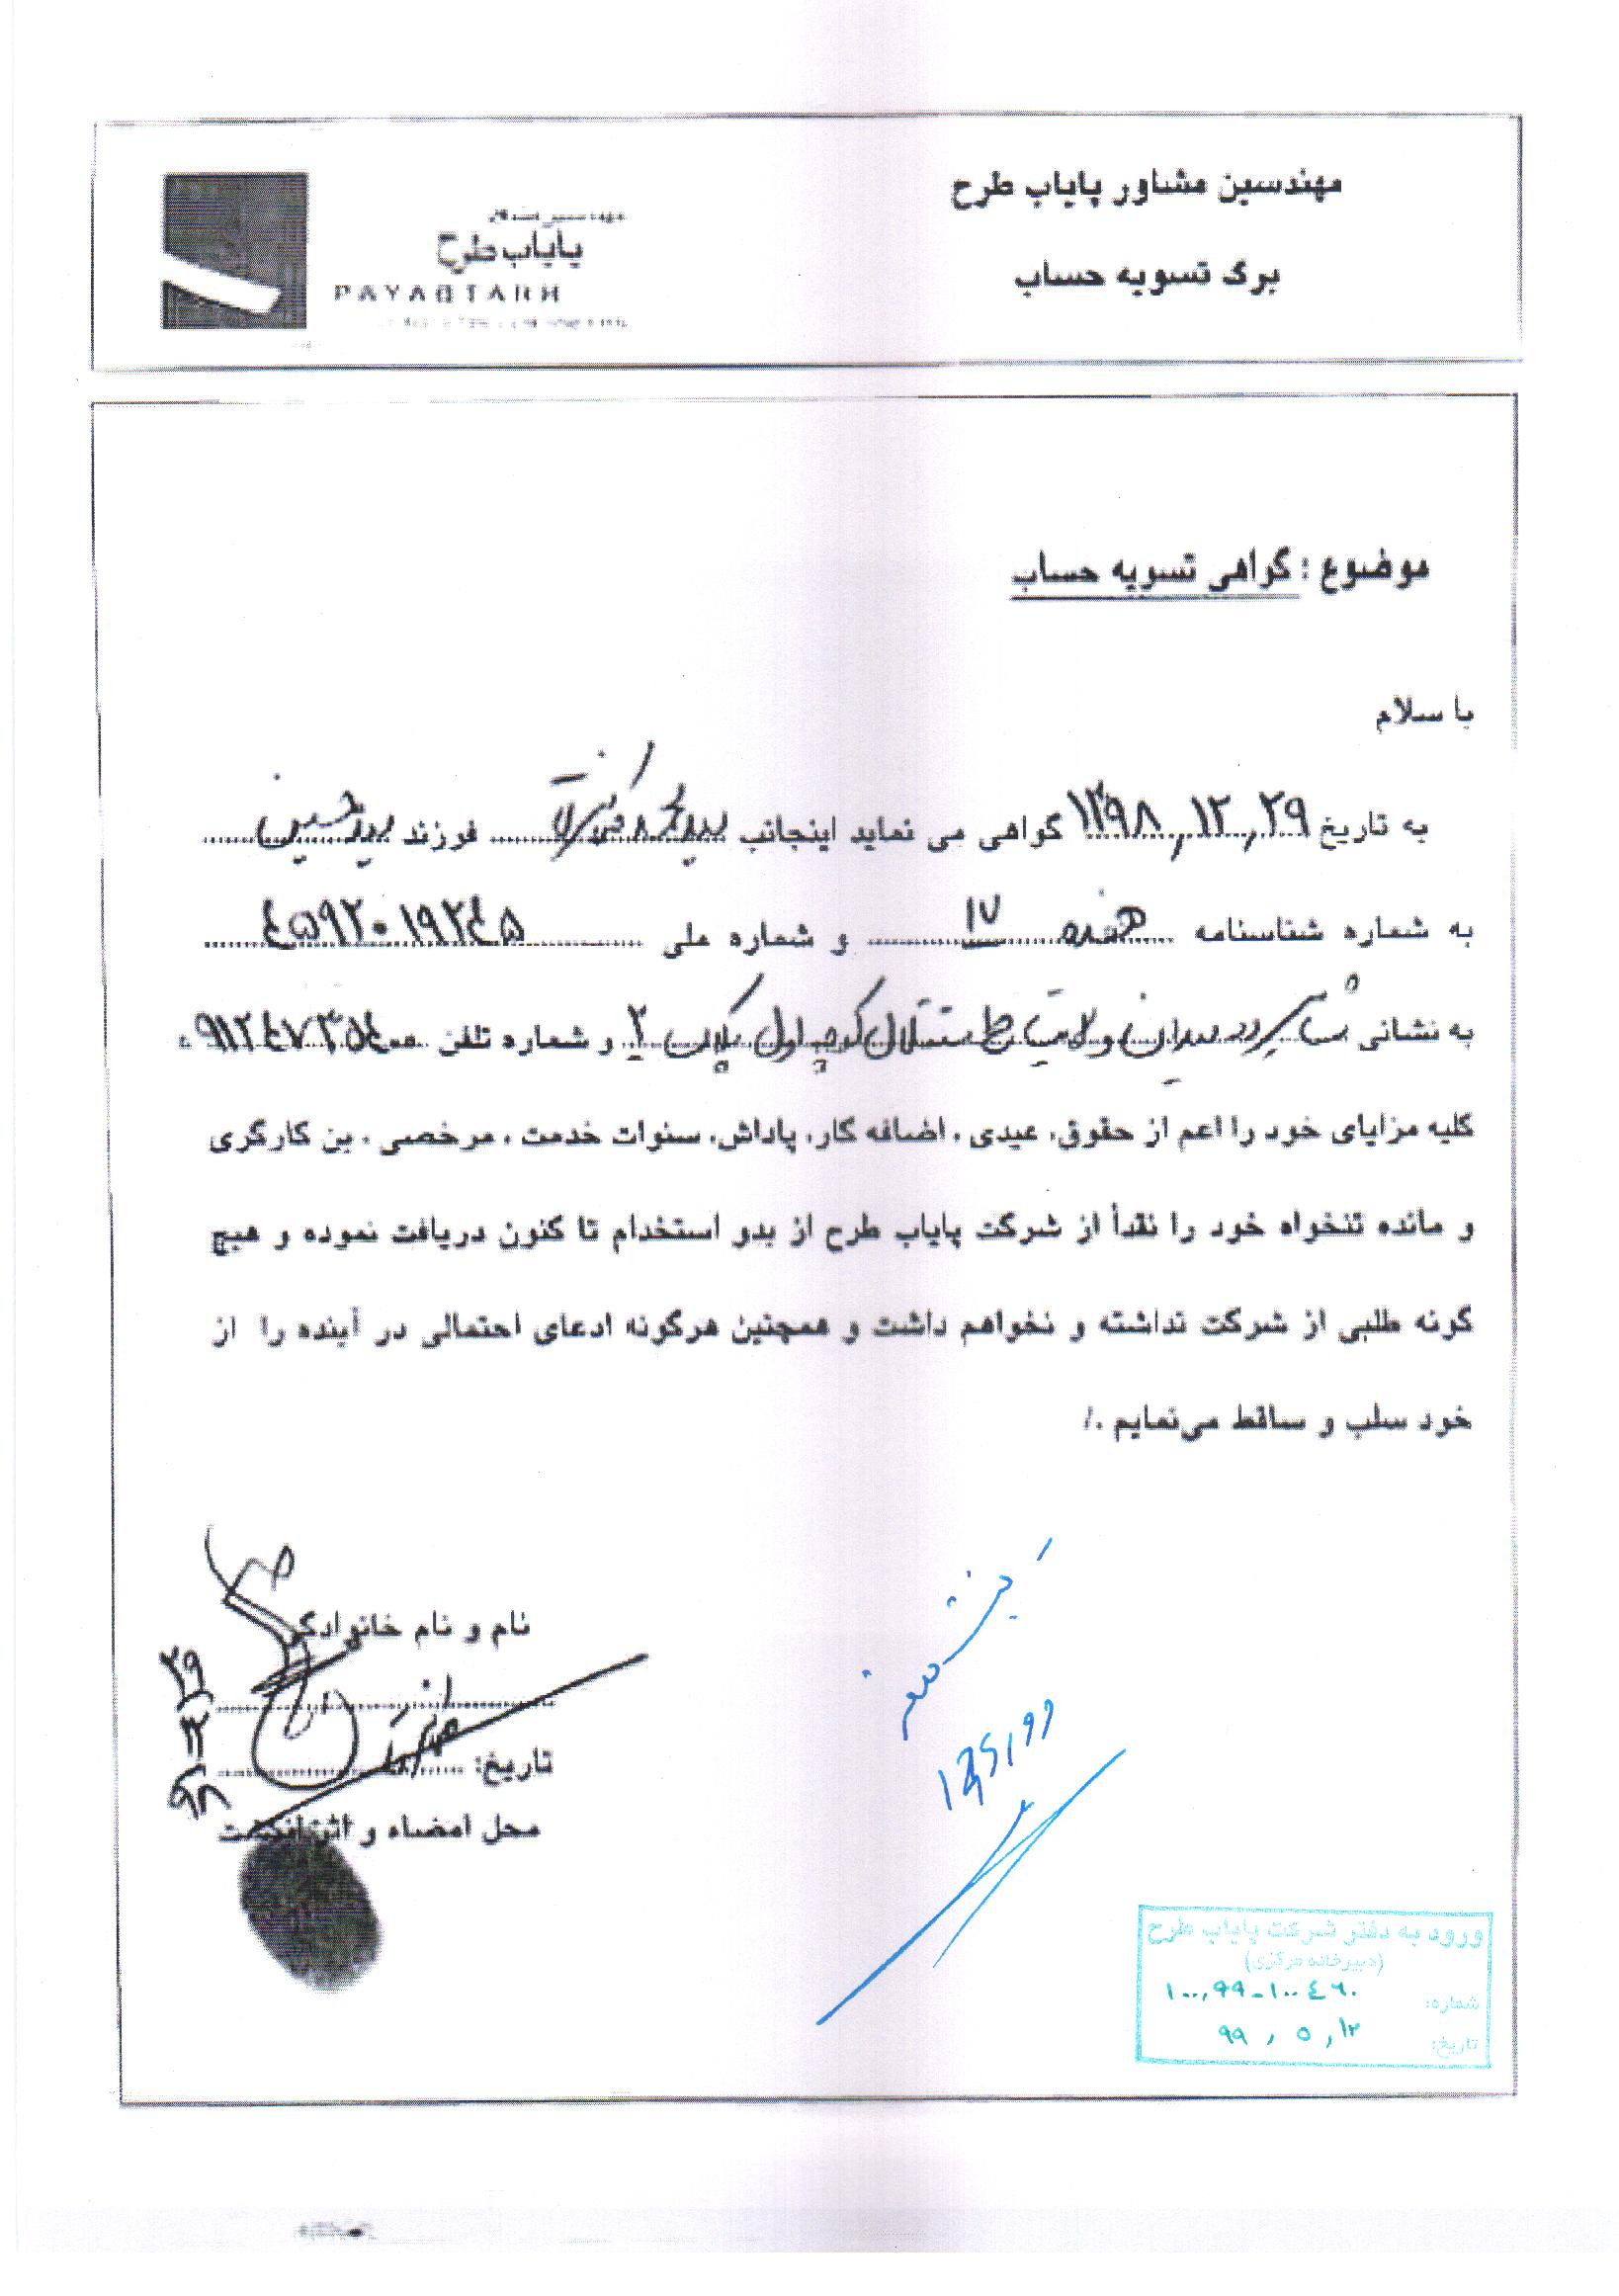 مهندسین مشاور پایاب طرح
برگ تسویه حساب
مهندسین مشاور
پایاب طرح
PAYABTARH
موضوع : گراهی تسویه حساب
با سلام
به تاریخ ۱۳۹۸,۱۲,۲۹ گواهی می نماید اینجانب سید محمد فرزند سید حسین
به شماره شناسنامه هفده ۱۷ و شماره ملی ۴۵۹۲۰۱۹۲۴۵
به نشانی میدان ولایت خ استقلال کوچه اول پلاک ۲ و شماره تلفن ۰۹۱۲۴۷۳۵۴۰۰
کلیه مزایای خود را اعم از حقوق، عیدی ، اضافه کار، پاداش، سنوات خدمت ، مرخصی ، بن کارگری
و مانده تنخواه خود را نقدأ از شرکت پایاب طرح از بدو استخدام تا کنون دریافت نموده و هیچ
گونه طلبی از شرکت نداشته و نخواهم داشت و همچنین هرگونه ادعای احتمالی در آینده را از
خود سلب و ساقط می‌نمایم ./
نام و نام خانوادگی
۲۹
۱۲
۹۸
تاریخ:
محل امضاء و اثر انگشت
ورود به دفتر شرکت پایاب طرح
(دبیرخانه مرکزی)
شماره: ۱۰۰,۹۹-۱۰۰۴۶۰
تاریخ: ۹۹,۵,۱۲